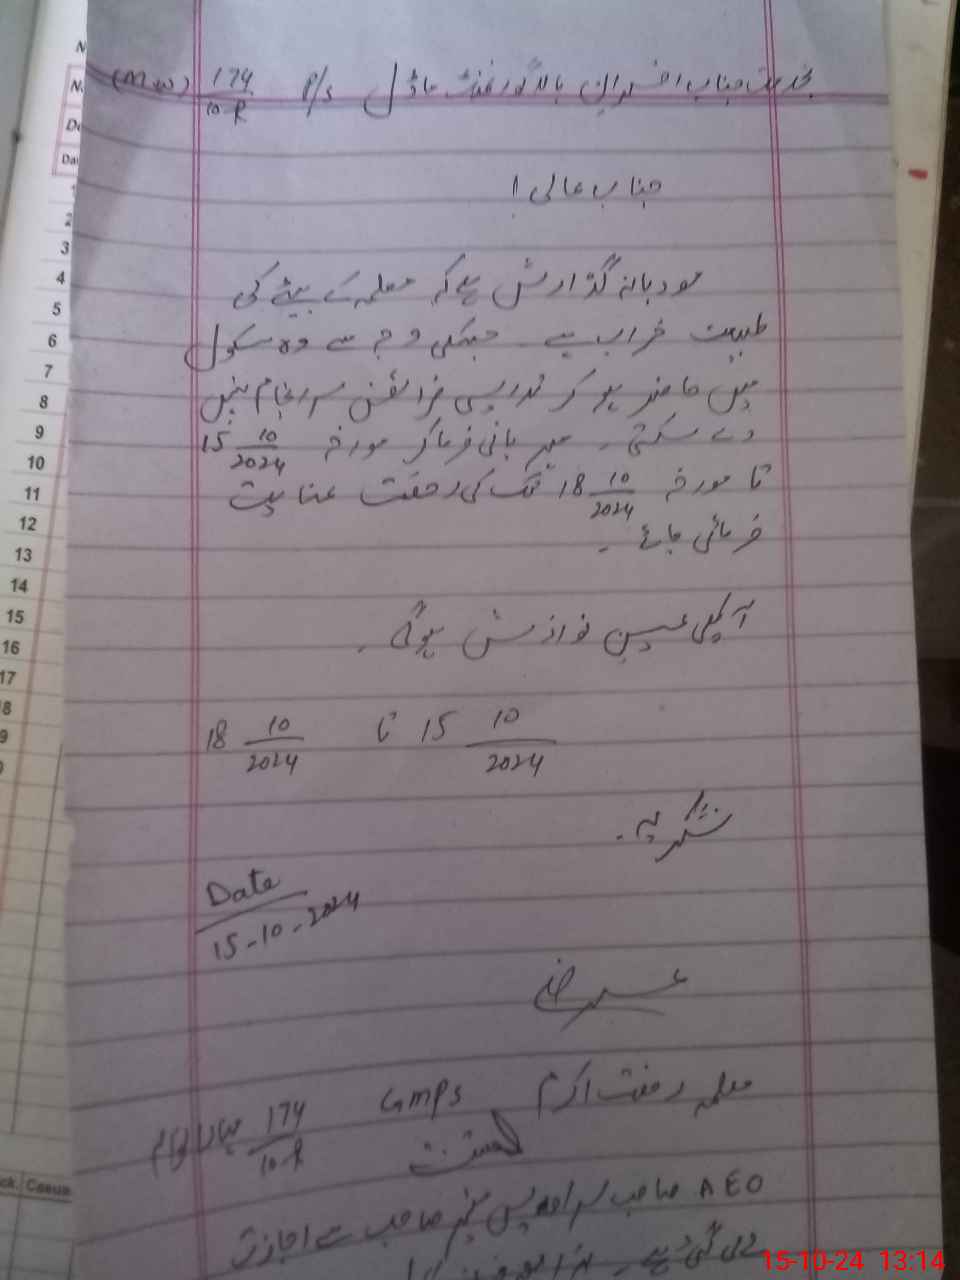 بخدمت جناب افسران بالا گورنمنٹ ماڈل P/S 174/10-R (M.W)
جناب عالی!
مودبانہ گذارش ہے کہ معلمہ کے بیٹے کی
طبیعت خراب ہے۔ جسکی وجہ سے وہ سکول
میں حاضر ہو کر تدریسی فرائض سرانجام نہیں
دے سکتی۔ مہربانی فرما کر مورخہ 15 10/2024
تا مورخہ 18 10/2024 تک کی رخصت عنایت
فرمائی جائے۔
آپکی عین نوازش ہوگی۔
15 10/2024 تا 18 10/2024
شکریہ۔
Date
15-10-2024
عرضے
معلمہ رفعت اکرم GMPS 174/10-R
AEO صاحب سر اویس صاحب سے اجازت
لی گئی ہے۔
15-10-24 13:14
No.
Da
1
2
3
4
5
6
7
8
9
10
11
12
13
14
15
16
17
8
9
Casua